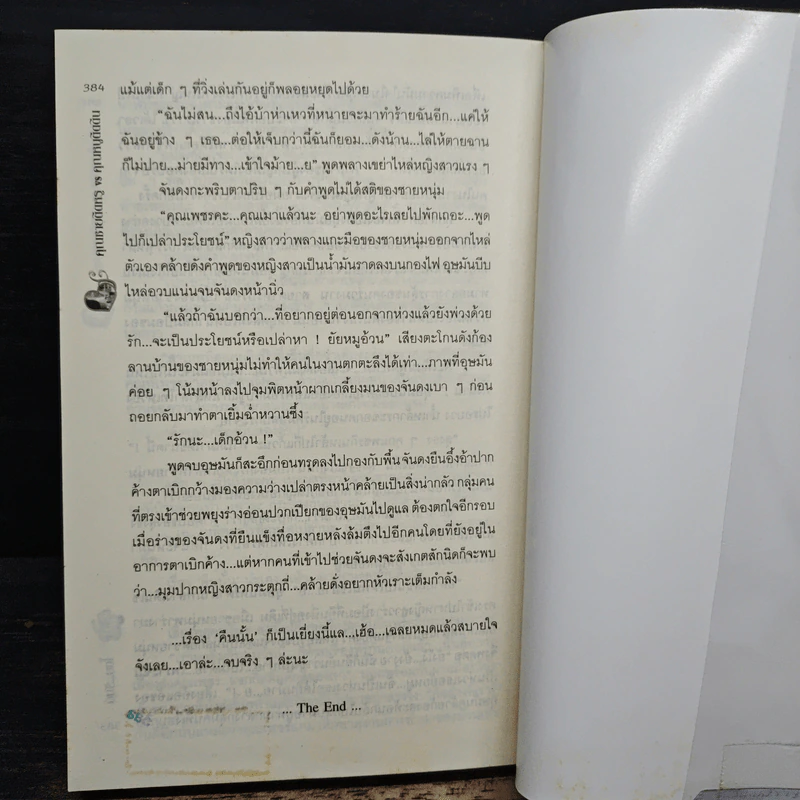 384
คุณชายติดหรู vs คุณหนูติดดิน
แม้แต่เด็ก ๆ ที่วิ่งเล่นกันอยู่ก็พลอยหยุดไปด้วย
“ฉันไม่สน...ถึงไอ้บ้าห่าเหวที่หนายจะมาทำร้ายฉันอีก...แค่ให้
ฉันอยู่ข้าง ๆ เธอ...ต่อให้เจ็บกว่านี้ฉันก็ยอม...ดังน้าน...ไล่ให้ตายฉาน
ก็ไม่ปาย...ม่ายมีทาง...เข้าใจม้าย...ย” พูดพลางเขย่าไหล่หญิงสาวแรง ๆ
จันดงกะพริบตาปริบ ๆ กับคำพูดไม่ได้สติของชายหนุ่ม
“คุณเพชรคะ...คุณเมาแล้วนะ อย่าพูดอะไรเลยไปพักเถอะ...พูด
ไปก็เปล่าประโยชน์” หญิงสาวว่าพลางแกะมือของชายหนุ่มออกจากไหล่
ตัวเอง คล้ายดังคำพูดของหญิงสาวเป็นน้ำมันราดลงบนกองไฟ อุษมันบีบ
ไหล่อวบแน่นจนจันดงหน้านิ่ว
“แล้วถ้าฉันบอกว่า...ที่อยากอยู่ต่อนอกจากห่วงแล้วยังพ่วงด้วย
รัก...จะเป็นประโยชน์หรือเปล่าหา ! ยัยหมูอ้วน” เสียงตะโกนดังก้อง
ลานบ้านของชายหนุ่มไม่ทำให้คนในงานตกตะลึงได้เท่า...ภาพที่อุษมัน
ค่อย ๆ โน้มหน้าลงไปจุมพิตหน้าผากเกลี้ยงมนของจันดงเบา ๆ ก่อน
ถอยกลับมาทำตาเยิ้มฉ่ำหวานซึ้ง
“รักนะ...เด็กอ้วน !”
พูดจบอุษมันก็สะอึกก่อนทรุดลงไปกองกับพื้น จันดงยืนอึ้งอ้าปาก
ค้างตาเบิกกว้างมองความว่างเปล่าตรงหน้าคล้ายเป็นสิ่งน่ากลัว กลุ่มคน
ที่ตรงเข้าช่วยพยุงร่างอ่อนปวกเปียกของอุษมันไปดูแล ต้องตกใจอีกรอบ
เมื่อร่างของจันดงที่ยืนแข็งทื่อหงายหลังล้มตึงไปอีกคนโดยที่ยังอยู่ใน
อาการตาเบิกค้าง...แต่หากคนที่เข้าไปช่วยจันดงจะสังเกตสักนิดก็จะพบ
ว่า...มุมปากหญิงสาวกระตุกถี่...คล้ายดั่งอยากหัวเราะเต็มกำลัง
...เรื่อง ‘คืนนั้น’ ก็เป็นเยี่ยงนี้แล...เฮ้อ...เฉลยหมดแล้วสบายใจ
จังเลย...เอาล่ะ...จบจริง ๆ ล่ะนะ
... The End ...